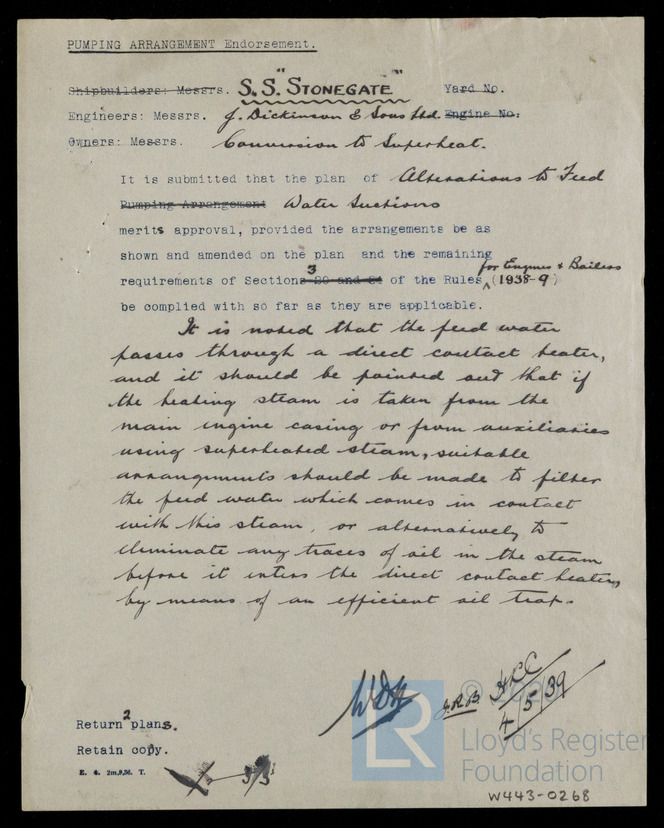 PUMPING ARRANGEMENT Endorsement.
Shipbuilders: Messrs. S.S. "STONEGATE" Yard No.
Engineers: Messrs. J. Dickinson & Sons Ltd. Engine No.
Owners: Messrs. Conversion to Superheat.
It is submitted that the plan of Alterations to Feed
Pumping Arrangement Water Suctions
merits approval, provided the arrangements be as
shown and amended on the plan and the remaining
for Engines & Boilers
requirements of Sections 3 20 and 21 of the Rules (1938-9)
be complied with so far as they are applicable.
It is noted that the feed water
passes through a direct contact heater,
and it should be pointed out that if
the heating steam is taken from the
main engine casing or from auxiliaries
using superheated steam, suitable
arrangements should be made to filter
the feed water which comes in contact
with this steam, or alternatively to
eliminate any traces of oil in the steam
before it enters the direct contact heater,
by means of an efficient oil trap.
J.R.B.
4/5/39
Return 2 plans.
Retain copy.
E. 4. 2m,9,36. T.
LR
Lloyd's Register
Foundation
W443-0268